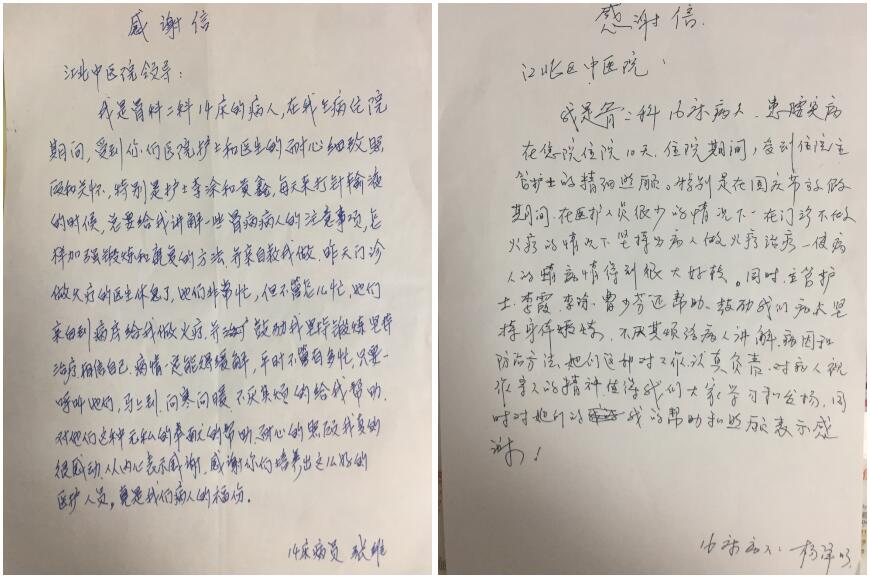 感谢信
江北中医院领导：
我是骨科二科14床的病人，在我生病住院
期间，受到你们医院护士和医生的耐心细致照
顾和关怀，特别是护士李涂和黄鑫，每天来打针输液
的时候，总要给我讲解一些骨病病人的注意事项，怎
样加强锻炼和康复的方法，并亲自教我做，昨天门诊
做火疗的医生休息了，她们非常忙，但不管怎么忙，她们
亲自到病床给我做火疗，并鼓励我坚持锻炼坚持
治疗相信自己，病情一定能缓解，平时不管有多忙，只要一
呼叫她们，马上到，问寒问暖，不厌其烦的给我帮助，
对他们这种无私的奉献的帮助，耐心的照顾我真的
很感动，从内心表示感谢，感谢你们培养出这么好的
医护人员。真是我们病人的福伤。
14床病员 张维
感谢信
江北区中医院：
我是骨二科16床病人，患腰突病
在您院住院10天，住院期间，受到住院主
管护士的精细照顾。特别是在国庆节放假
期间，在医护人员很少的情况下，在门诊不做
火疗的情况下坚持为病人做火疗治疗，使病
人的病情得到很大好转。同时，主管护
士，李霞，李涂，曹少芬还帮助、鼓励我们病人坚
持身体锻炼，不厌其烦给病人讲解，病因和
防治方法，她们这种对工作认真负责，对病人视
作亲人的精神值得我们大家学习和发扬，同
时对她们的我的帮助和照顾表示感
谢！
16床病人：杨泽明